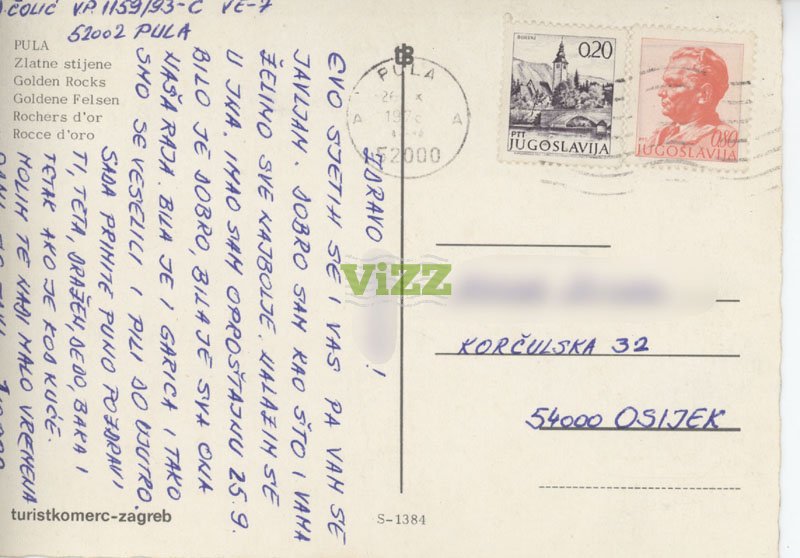 ČOLIĆ VP 1159/93-C VE-7
52002 PULA
PULA
Zlatne stijene
Golden Rocks
Goldene Felsen
Rochers d'or
Rocce d'oro
ZDRAVO !
EVO SJETIH SE I VAS PA VAM SE
JAVLJAM. DOBRO SAM KAO ŠTO I VAMA
ŽELIMO SVE NAJBOLJE. NALAZIM SE
U JNA. IMAO SAM OPROŠTAJNU 25.9.
BILO JE DOBRO, BILA JE SVA ONA
NAŠA RAJA. BILA JE I GARICA I TAKO
SMO SE VESELILI I PILI DO UJUTRO.
SADA PRIMITE PUNO POZDRAVI
TI, TETA, DRAŽEN, DEDO, BAKA I
TETAK AKO JE KOD KUĆE.
MOLIM TE NAĐI MALO VREMENA
PULA
A A
52000
0,20
PTT
JUGOSLAVIJA
0,80
JUGOSLAVIJA
ViZZ
KORČULSKA 32
54000 OSIJEK
turistkomerc-zagreb
S-1384